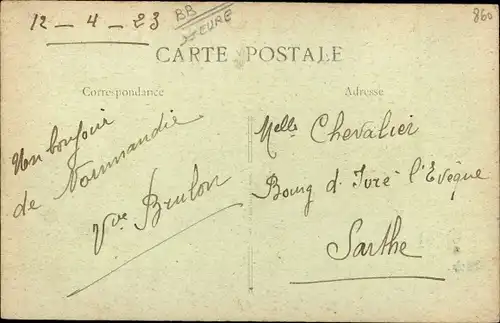 12 - 4 - 23
BB
EURE
860
CARTE POSTALE
Correspondance
Adresse
Un bonjour
de Normandie
Vve Brulon
Melle Chevalier
Bourg d'Ivré l'Evêque
Sarthe